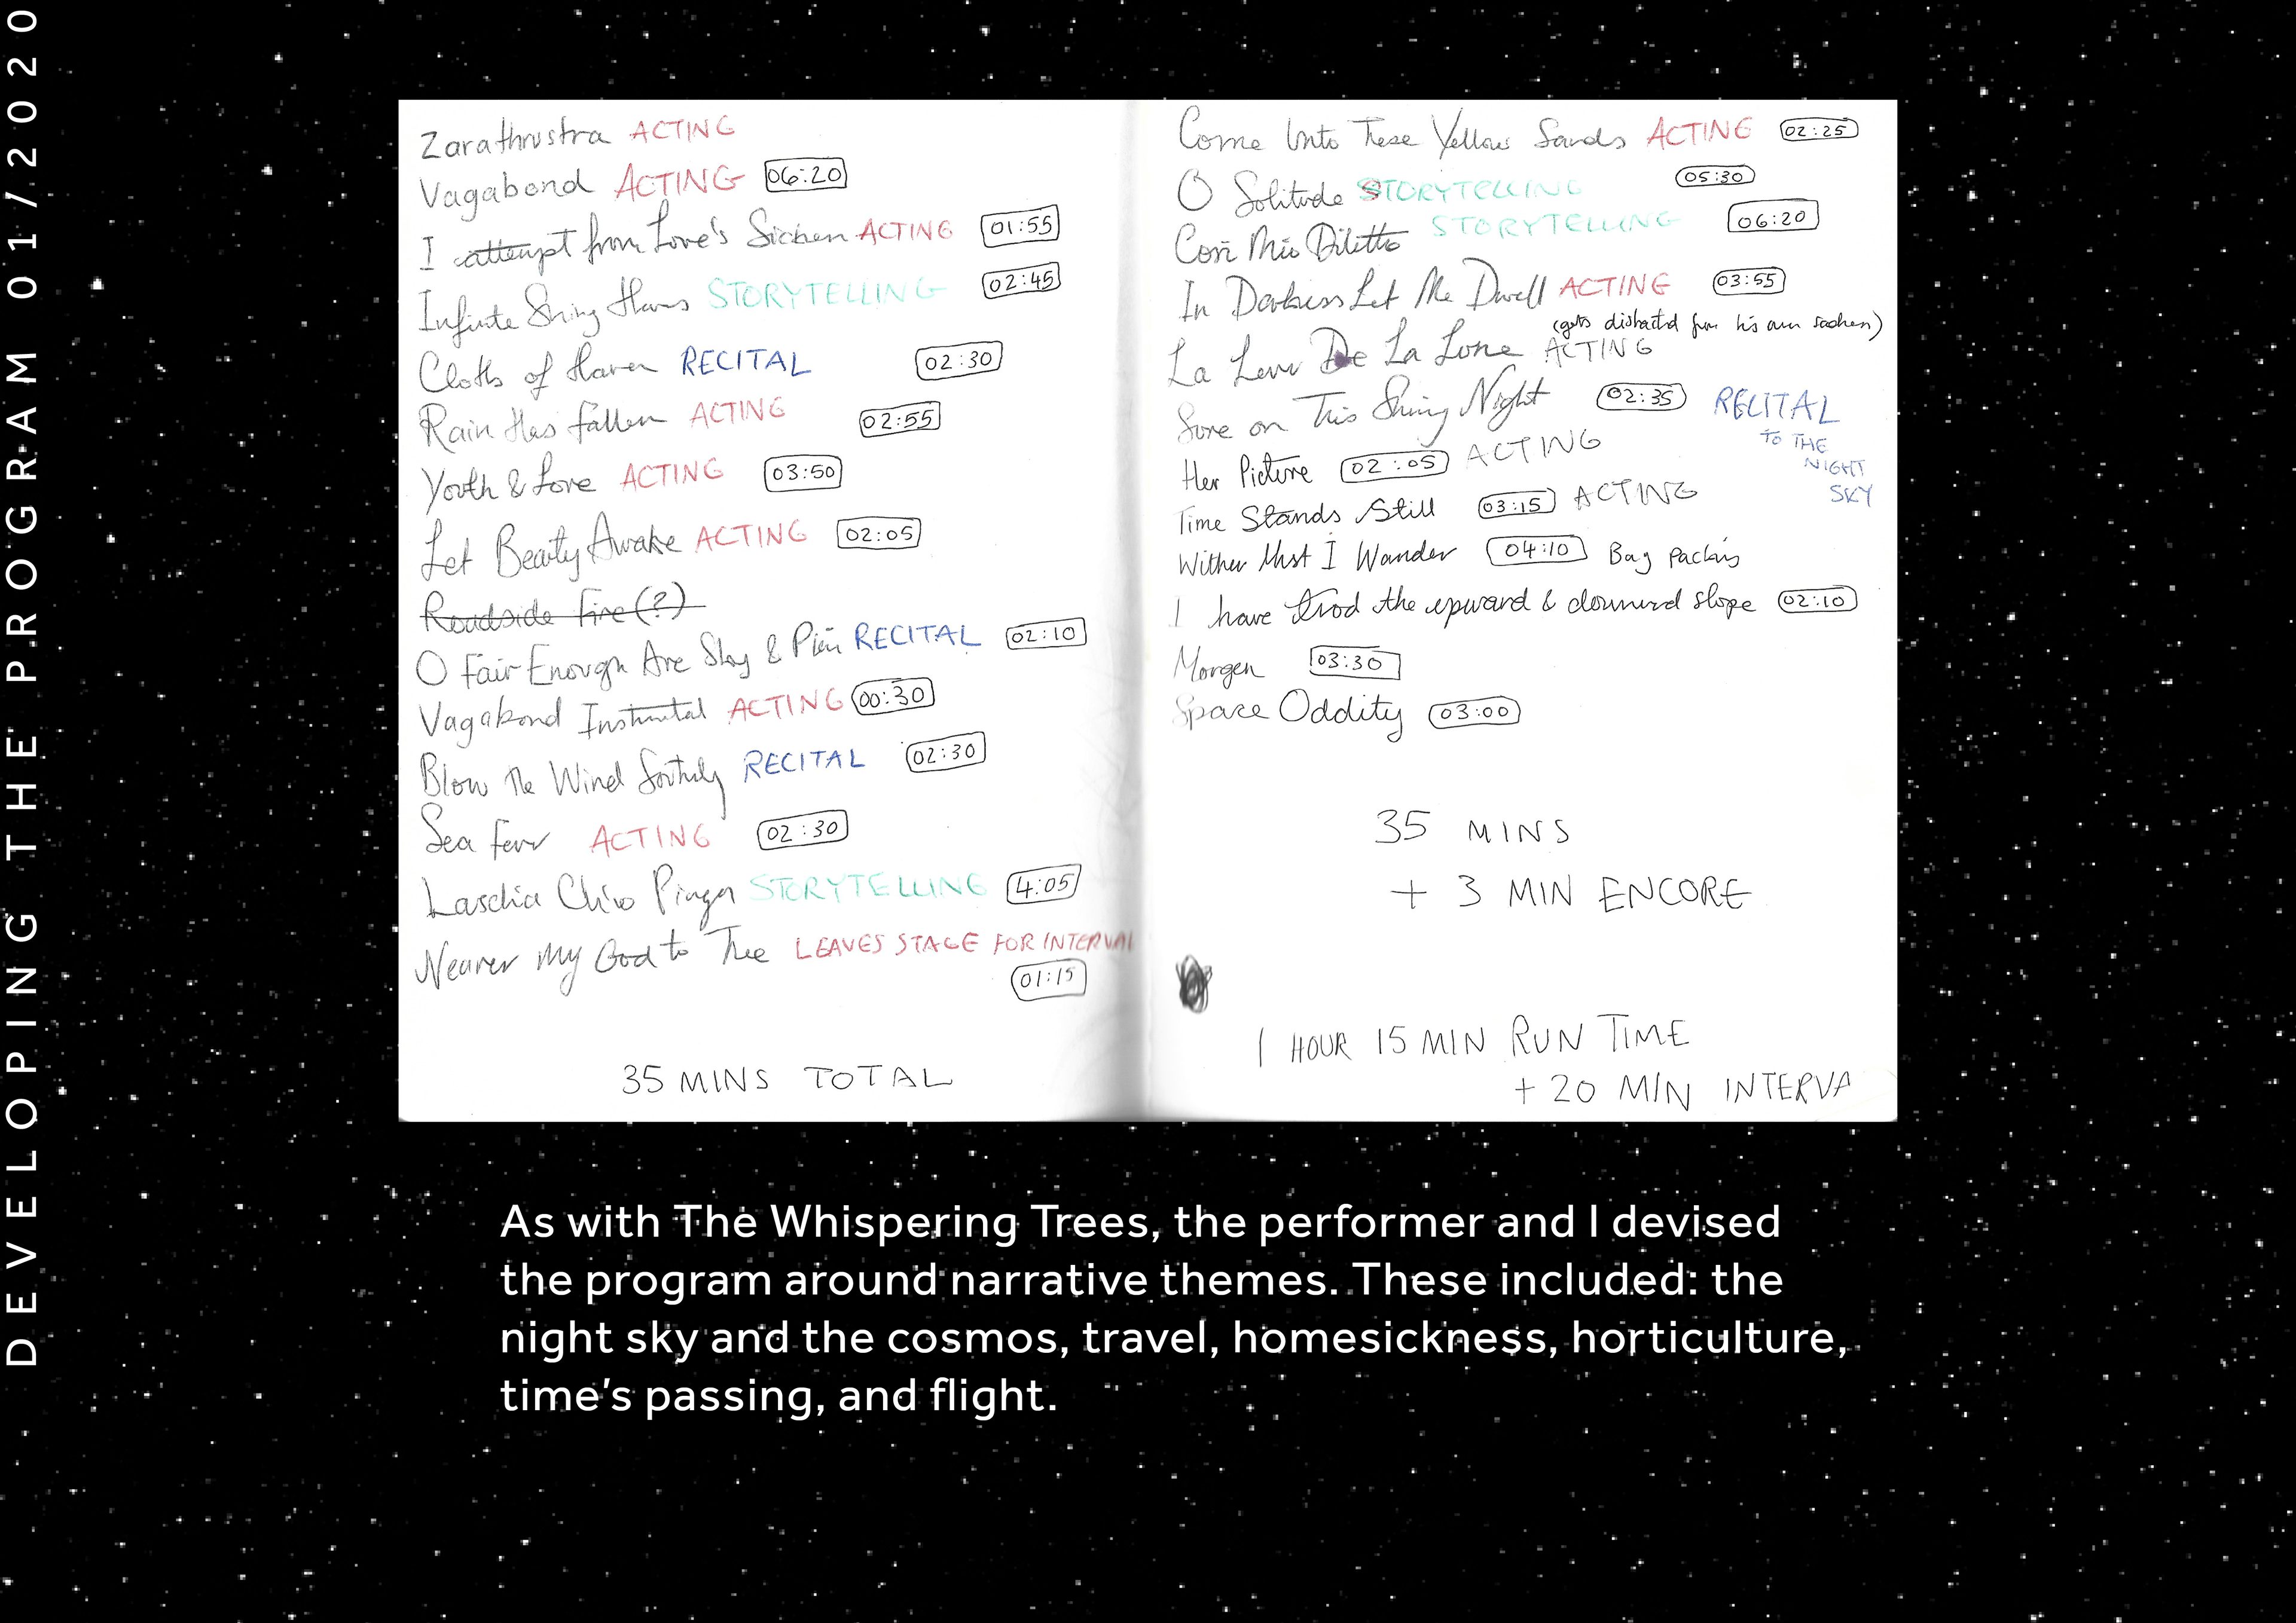 DEVELOPING THE PROGRAM 01/2020
Zarathrustra ACTING
Vagabond ACTING 06:20
I attempt from Love's Sicknen ACTING 01:55
Infinite Shing Havns STORYTELLING 02:45
Cloths of Haven RECITAL 02:30
Rain Has Fallen ACTING 02:55
Youth & Love ACTING 03:50
Let Beauty Awake ACTING 02:05
Roadside Fire (?)
O Fair Enough Are Sky & Plain RECITAL 02:10
Vagabond Instrumtal ACTING 00:30
Blow The Wind Southuly RECITAL 02:30
Sea Fever ACTING 02:30
Laschia Chi'o Pianga STORYTELLING 4:05
Nearer My God to Thee LEAVES STAGE FOR INTERVAL
01:15
35 MINS TOTAL
Come Unto These Yellow Sands ACTING 02:25
O Solitude STORYTELLING 05:30
Con Mio Diletto STORYTELLING 06:20
In Darkness Let Me Dwell ACTING 03:55
(gets distractd from his own sadnen)
La Leur De La Lune ACTING
Sure on This Shing Night 02:35 RECITAL
TO THE
NIGHT
SKY
Her Picture 02:05 ACTING
Time Stands Still 03:15 ACTING
Wither Must I Wander 04:10 Bag packing
I have trod the upward & downward slope 02:10
Morgen 03:30
Space Oddity 03:00
35 MINS
+ 3 MIN ENCORE
1 HOUR 15 MIN RUN TIME
+ 20 MIN INTERVA
As with The Whispering Trees, the performer and I devised
the program around narrative themes. These included: the
night sky and the cosmos, travel, homesickness, horticulture,
time's passing, and flight.